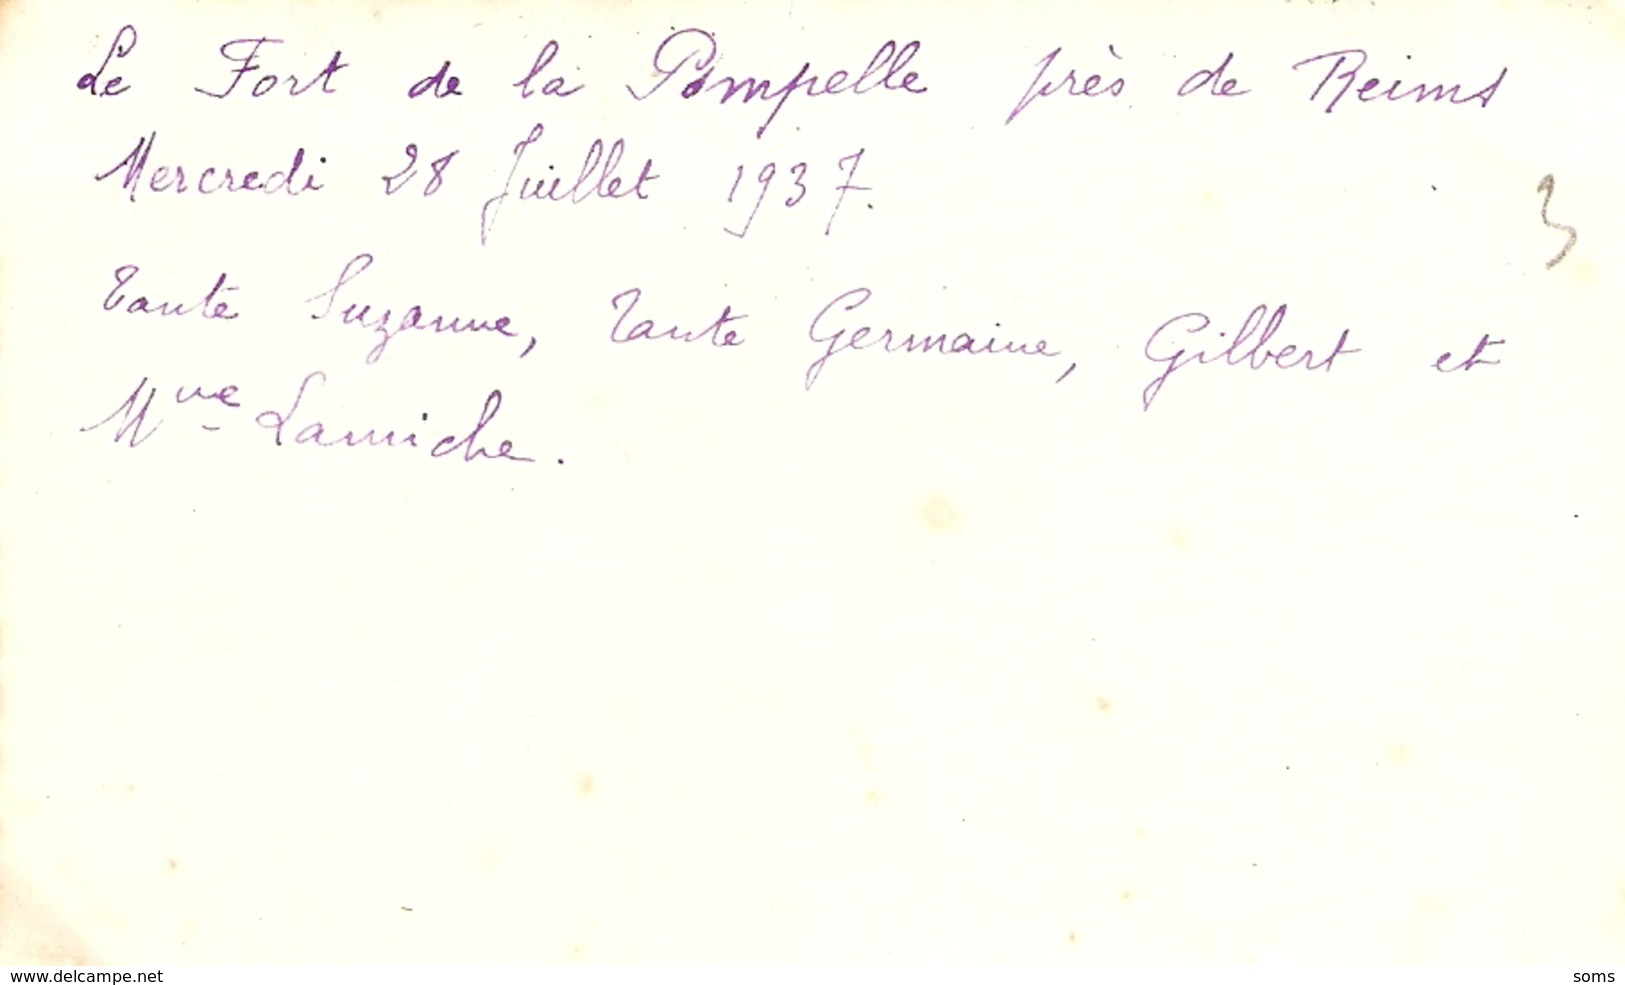 Le Fort de la Pompelle près de Reims
Mercredi 28 Juillet 1937.
3
Tante Suzanne, Tante Germaine, Gilbert et
Mme Lamiche.
www.delcampe.net
soms